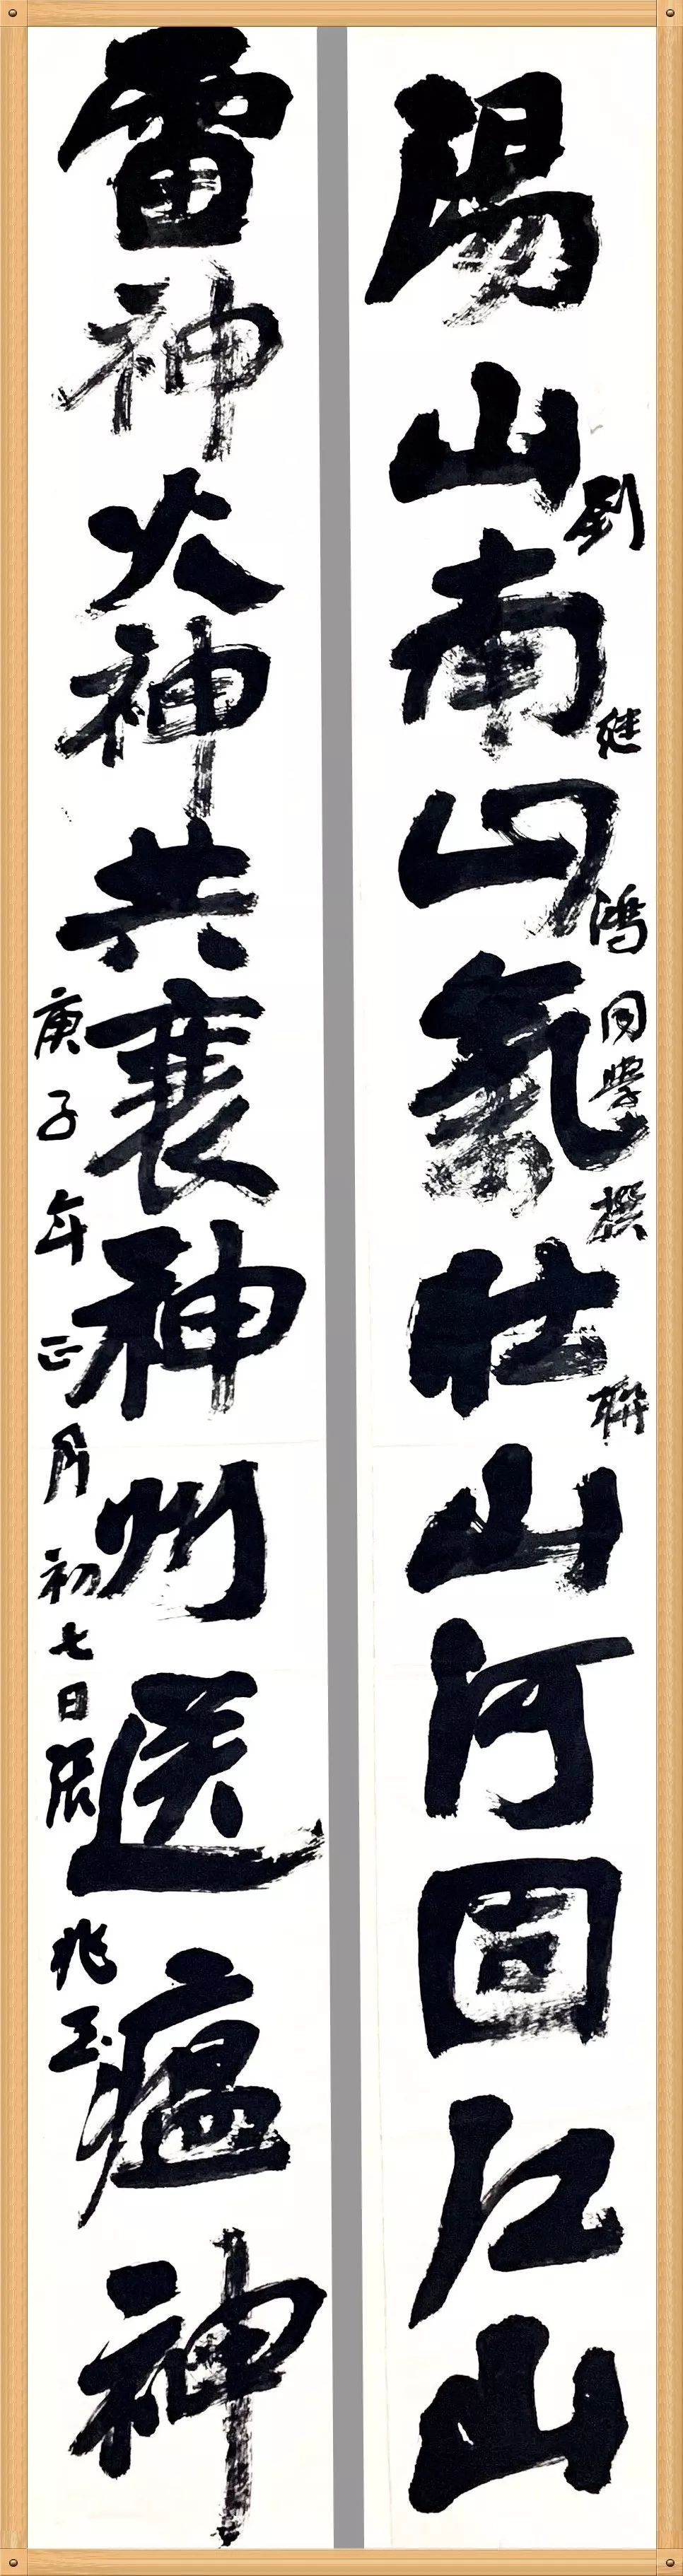 陽山南山氣壯山河固江山
劉继鴻同學撰聯
雷神火神共襄神州送瘟神
庚子年正月初七日張兆玉